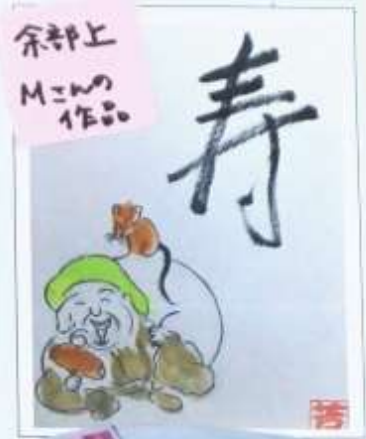 余部上
Mさんの
作品
寿